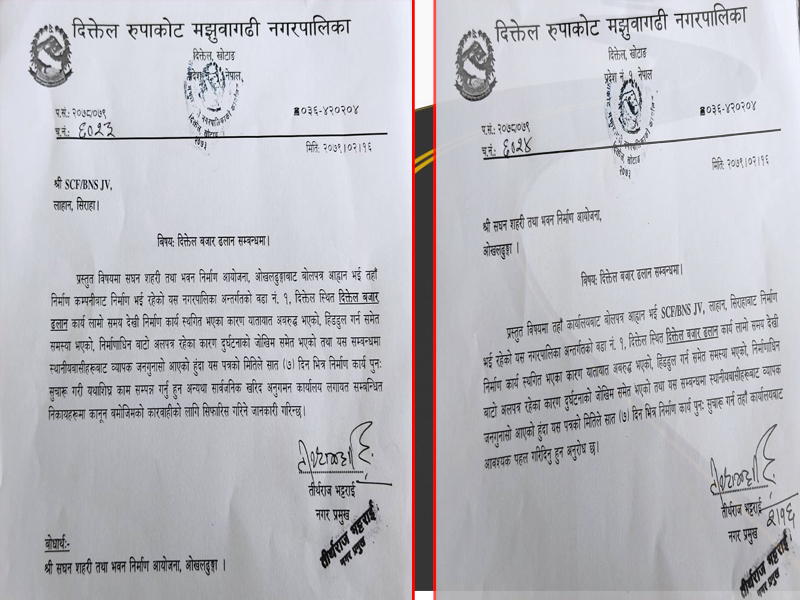 दिक्तेल रुपाकोट मझुवागढी नगरपालिका
दिक्तेल, खोटाङ
प्रदेश नं. १, नेपाल
प.सं.: २०७८/०७९
☎०३६-४२०२०४
च.नं.: ६०२३
मिति: २०७९।०२।१६
श्री SCF/BNS JV,
लाहान, सिराहा।
बिषय: दिक्तेल बजार ढलान सम्बन्धमा।
प्रस्तुत विषयमा सघन शहरी तथा भवन निर्माण आयोजना, ओखलढुङ्गाबाट बोलपत्र आह्वान भई तहाँ
निर्माण कम्पनीबाट निर्माण भई रहेको यस नगरपालिका अन्तर्गतको वडा नं. १, दिक्तेल स्थित दिक्तेल बजार
ढलान कार्य लामो समय देखी निर्माण कार्य स्थगित भएका कारण यातायात अवरुद्ध भएको, हिडडुल गर्न समेत
समस्या भएको, निर्माणाधिन बाटो अलपत्र रहेका कारण दुर्घटनाको जोखिम समेत भएको तथा यस सम्बन्धमा
स्थानीयवासीहरूबाट व्यापक जनगुनासो आएको हुंदा यस पत्रको मितिले सात (७) दिन भित्र निर्माण कार्य पुन:
सुचारू गरी यथाशिघ्र काम सम्पन्न गर्नु हुन अन्यथा सार्वजनिक खरिद अनुगमन कार्यालय लगायत सम्बन्धित
निकायहरूमा कानून बमोजिमको कारवाहीको लागि सिफारिस गरिने जानकारी गरिन्छ।
तीर्थराज भट्टराई
नगर प्रमुख
तीर्थराज भट्टराई
नगर प्रमुख
बोधार्थ:-
श्री सघन शहरी तथा भवन निर्माण आयोजना, ओखलढुङ्गा ।
दिक्तेल रुपाकोट मझुवागढी नगरपालिका
दिक्तेल, खोटाङ
प्रदेश नं. १, नेपाल
प.सं.: २०७८/०७९
☎०३६-४२०२०४
च.नं.: ६०२४
मिति: २०७९।०२।१६
श्री सघन शहरी तथा भवन निर्माण आयोजना,
ओखलढुङ्गा ।
बिषय: दिक्तेल बजार ढलान सम्बन्धमा।
प्रस्तुत विषयमा तहाँ कार्यालयबाट बोलपत्र आह्वान भई SCF/BNS JV, लाहान, सिराहाबाट निर्माण
भई रहेको यस नगरपालिका अन्तर्गतको वडा नं. १, दिक्तेल स्थित दिक्तेल बजार ढलान कार्य लामो समय देखी
निर्माण कार्य स्थगित भएका कारण यातायात अवरुद्ध भएको, हिडडुल गर्न समेत समस्या भएको, निर्माणाधिन
बाटो अलपत्र रहेका कारण दुर्घटनाको जोखिम समेत भएको तथा यस सम्बन्धमा स्थानीयवासीहरूबाट व्यापक
जनगुनासो आएको हुंदा यस पत्रको मितिले सात (७) दिन भित्र निर्माण कार्य पुन: सुचारू गर्न तहाँ कार्यालयबाट
आवश्यक पहल गरिदिनु हुन अनुरोध छ।
तीर्थराज भट्टराई
२।१६
नगर प्रमुख
तीर्थराज भट्टराई
नगर प्रमुख